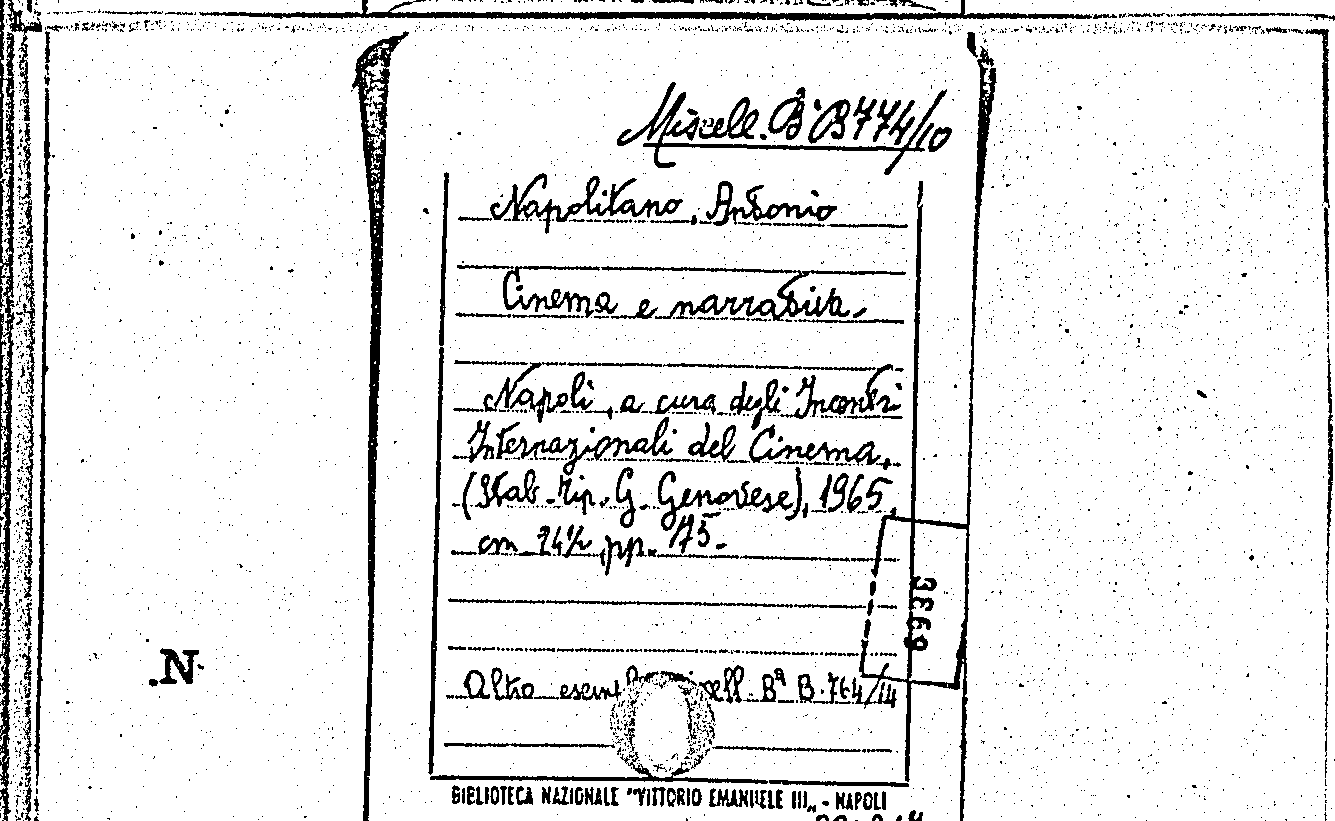 Miscell. Bª B 774/10
Napolitano, Antonio
Cinema e narrativa.
Napoli, a cura degli Incontri
Internazionali del Cinema,
(Stab. Tip. G. Genovese), 1965,
cm 24½, pp. 75.
3669
.N.
Altro Bª B. 764/14
BIBLIOTECA NAZIONALE "VITTORIO EMANUELE III„ - NAPOLI